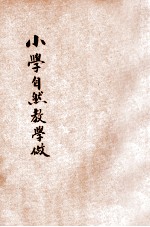 小學自然教學做